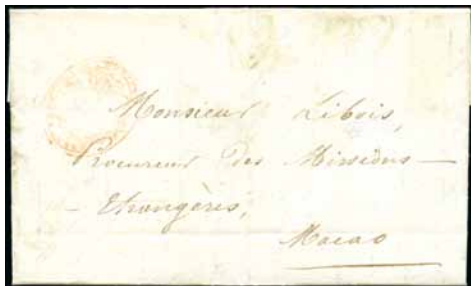 Monsieur Libois,
Procureur des Missions —
— Etrangères,
Macao